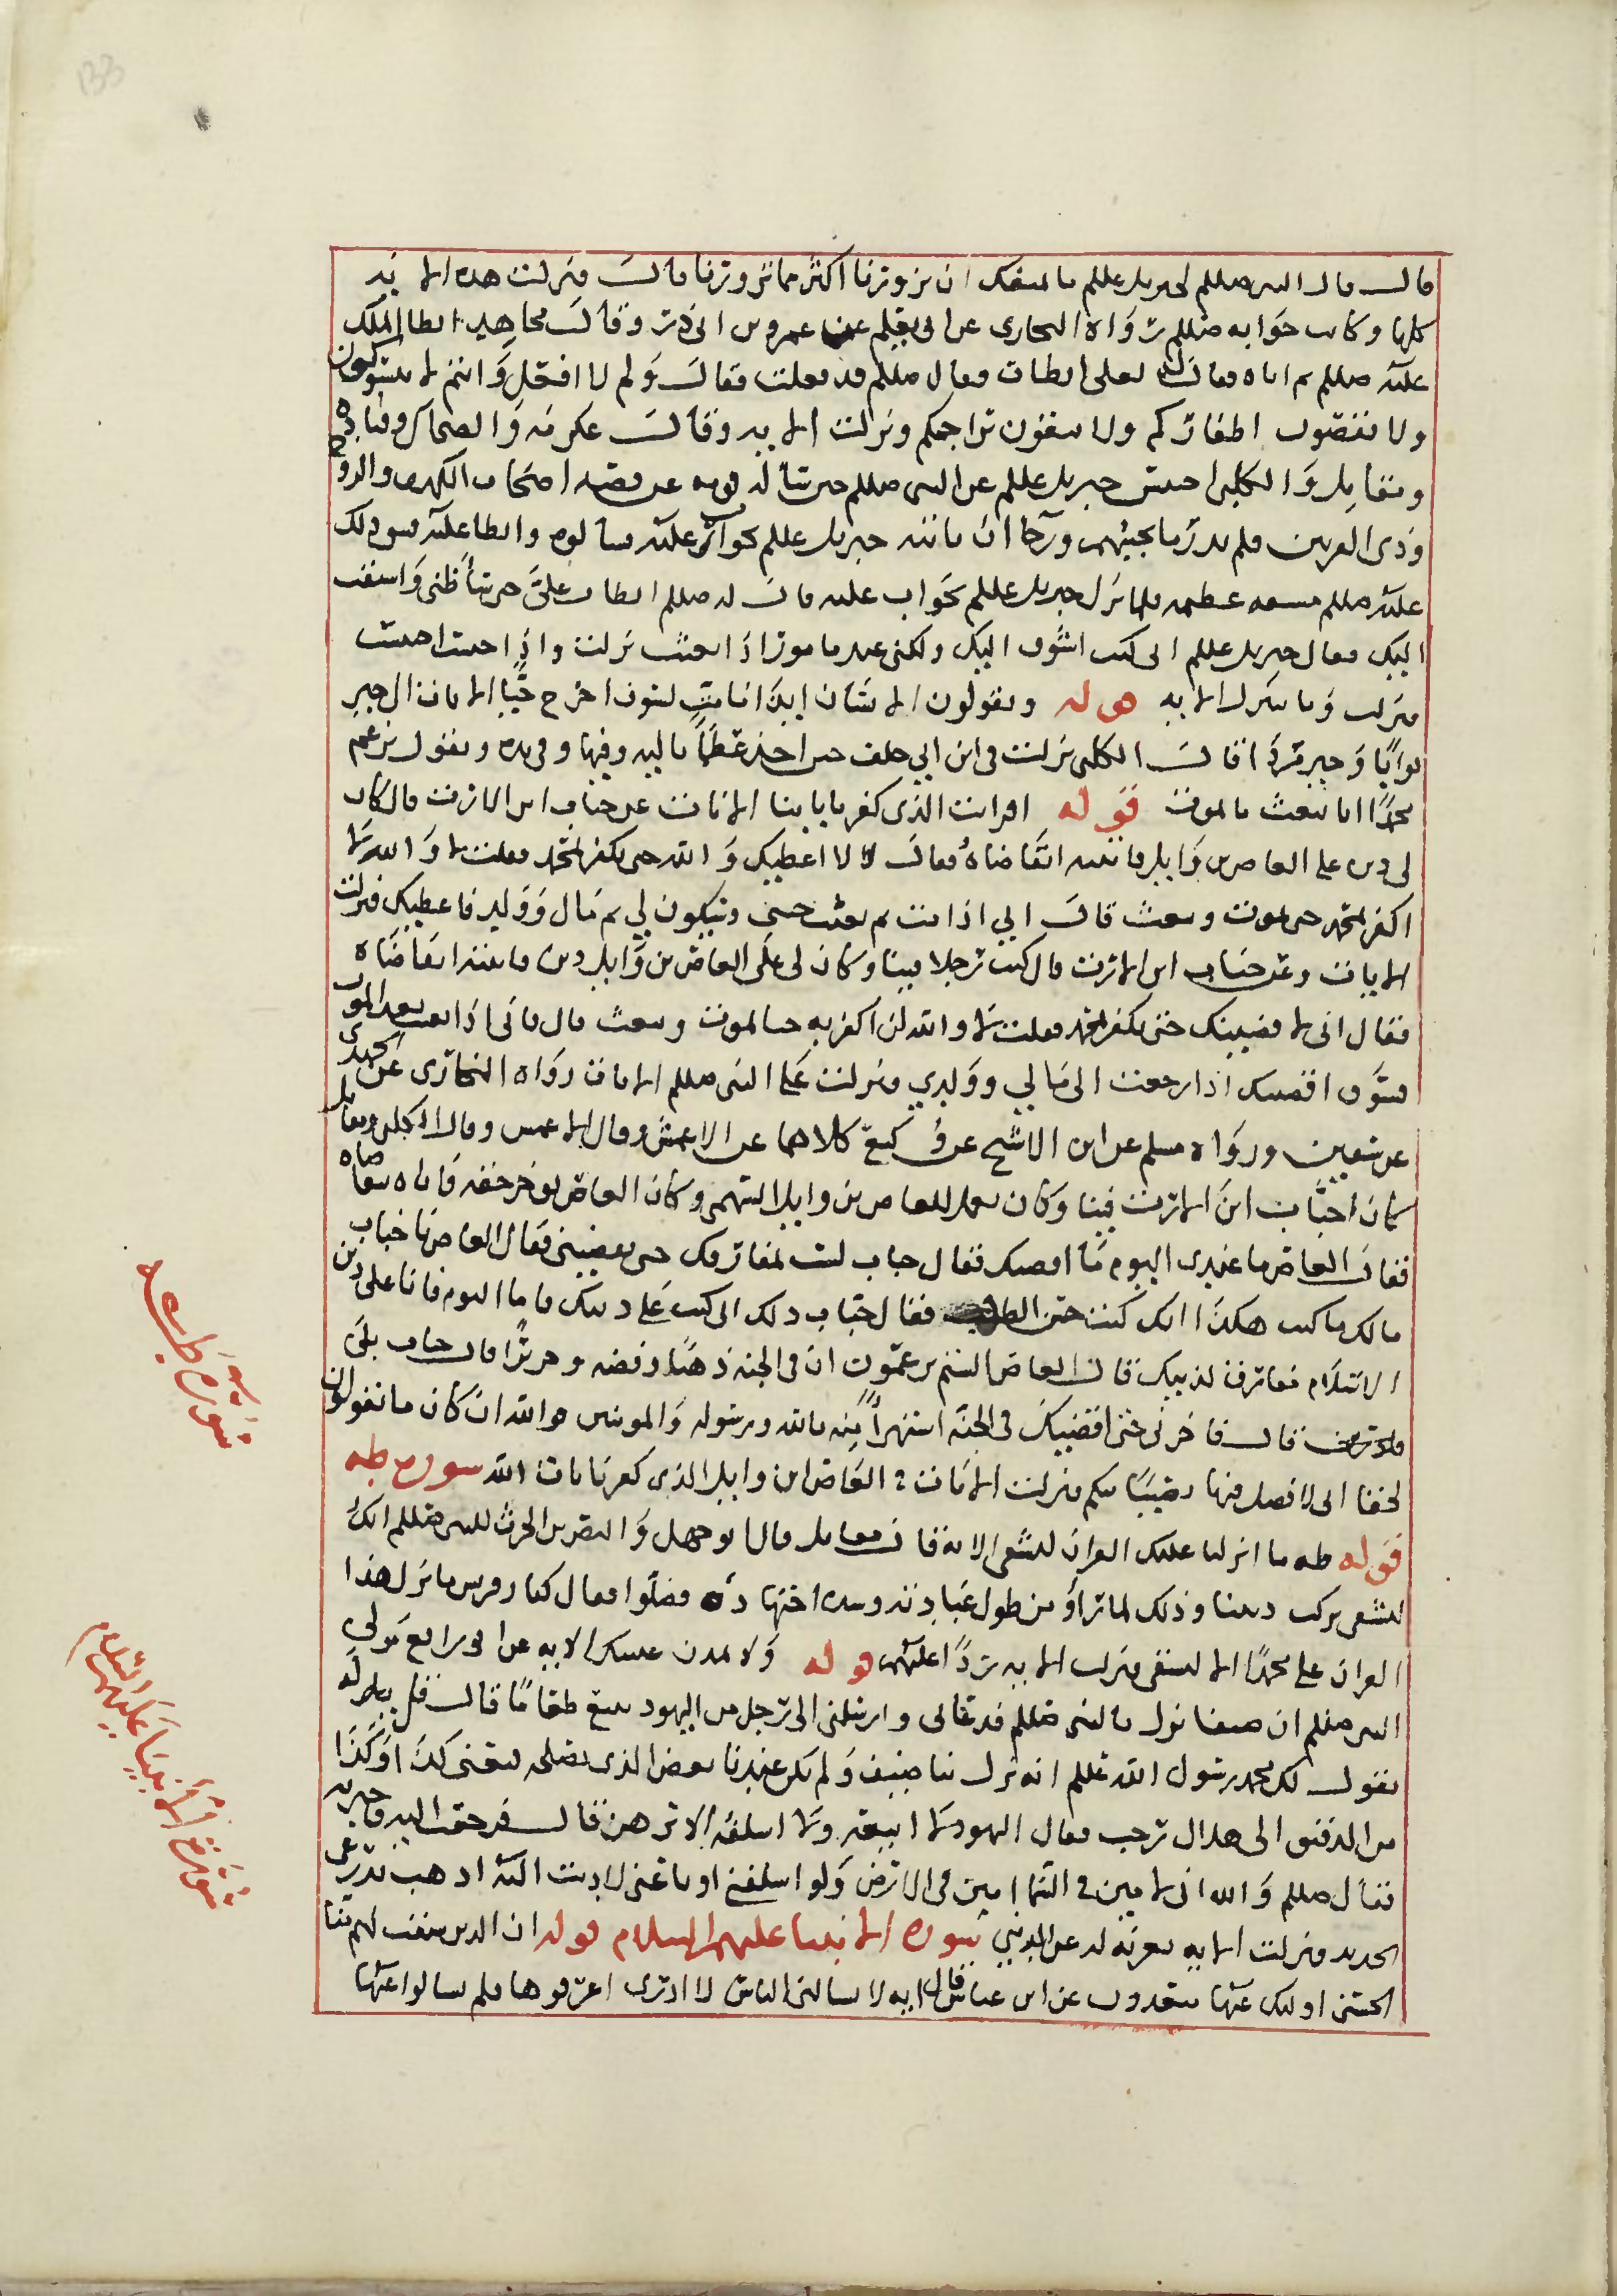 قال قال النبي صللم لجبريل عللم ما يمنعك ان تزورنا اكثر مما تزورنا قال فنزلت هذه الاية
كلها وكان جوابه صللم رواه البخاري عن ابي نعيم عن عمر بن ابي ذر وقال مجاهد ابطا الملك
عليه صللم ثم اتاه فقال له لعلي ابطات فقال صللم قد فعلت فقال ولم لا افعل وانتم لا تتسوكون
ولا تقصون اظفاركم ولا تنقون براجمكم ونزلت الاية وقال عكرمة والضحاك وقتادة
ومقاتل والكلبي احتبس جبريل عللم عن النبي صللم حين ساله قومه عن قصة اصحاب الكهف والروح
وذي القرنين فلم يدر ما يجيبهم ورجا ان ياتيه جبريل عللم بجواب ما سالوه وابطا عليه فشق ذلك
عليه صللم مشقة عظيمة فلما نزل جبريل عللم بجواب عليه قال له صللم ابطات علي حتى ساء ظني واشتقت
اليك فقال جبريل عللم اني كنت اشوق اليك ولكني عبد مامور اذا بعثت نزلت واذا حبست احتبست
فنزلت وما نتنزل الاية قوله ويقولون الانسان اءذا ما مت لسوف اخرج حيا الايات الى خير
ثوابا وخير مردا قال الكلبي نزلت في ابن ابي خلف حين اخذ عظما بالية وفتها في يده ويقول يزعم
محمدا انا نبعث ما لموت قوله افرايت الذي كفر باياتنا الايات عن خباب ابن الارت قال كان
لي دين على العاص بن وايل فاتيته اتقاضاه فقال لا لا اعطيك والله حتى تكفر بمحمد فقلت لا والله لا
اكفر بمحمد حتى تموت وتبعث قال اني اذا مت ثم بعثت جئتني وسيكون لي ثم مال وولد فاعطيك فنزلت
الايات وعن خباب ابن الارت قال كنت رجلا قينا وكان لي على العاص بن وايل دين فاتيته اتقاضاه
فقال اني لا قضيتك حتى تكفر بمحمد فقلت لا والله لن اكفر به حتى تموت وتبعث قال فاني اذا بعثت بعد الموت
فسوف اقضيك اذا رجعت الى مالي وولدي ونزلت على النبي صللم الايات رواه البخاري عن الحميدي
عن سفين ورواه مسلم عن ابن الاشج عن وكيع كلاهما عن الاعمش وقال الاعمش وقال الكلبي ومقاتل
كان خباب ابن الارت قينا وكان يعمل للعاص بن وايل السهمي وكان العاص يوخر حقه فاتاه يتقاضاه
فقال العاص ما عندي اليوم ما اقضيك فقال خباب لست بمفارقك حتى تقضيني فقال العاص يا خباب
مالك ما كنت هكذا انك كنت حسن الطلب فقال خباب ذلك اني كنت على دينك فاما اليوم فانا على دين
الاسلام مفارق لدينك قال العاص الستم تزعمون ان في الجنة ذهبا وفضة وحريرا قال خباب بلى
قال فاخرني حتى اقضيك في الجنة استهزاء منه بالله ورسوله والمومنين فوالله ان كان ما تقولون
لحقا اني لافضل فيها نصيبا منكم فنزلت الايات في العاص ابن وايل الذي كفر بايات الله سورة طه
قوله طه ما انزلنا عليك القران لتشقى الاية قال مقاتل قال ابو جهل والنضر بن الحرث للنبي صللم انك
لتشقى بترك ديننا وذلك لما راو من طول عبادته وشدة اجتهاده فصلوا فقال كفار قريش ما نزل هذا
القران على محمدا الا ليشقى فنزلت الاية ردا عليهم قوله ولا تمدن عينيك الاية عن ابي رافع مولى
النبي صللم ان ضيفا نزل بالنبي صللم فدعاني وارسلني الى رجل من اليهود يبيع طعاما قال قل يقول له
يقول لك محمد رسول الله عللم انه نزل بنا ضيف ولم يكن عندنا بعض الذي يصلحه فبعني كذا او كذا
من الدقيق الى هلال رجب فقال اليهود لا ابيعه ولا اسلفه الا برهن قال فرجعت اليه فاخبرته
فقال صللم والله اني لامين في السما امين في الارض ولو اسلفني او باعني لاديت اليه اذهب بدرعي
الحديد فنزلت الاية تعزية له عن الدنيا سورة الانبياء عليهم السلام قوله ان الذين سبقت لهم منا
الحسنى اوليك عنها مبعدون عن ابن عباس قال اية لا يسالني الناس لا ادري اعرفوها فلم يسالوا عنها
سورة طه
سورة الانبياء عليهم السلام
133